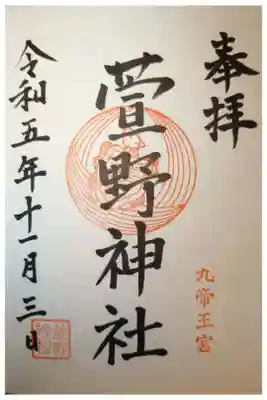 奉拝
萱野神社
九帝王宮
令和五年十一月三日